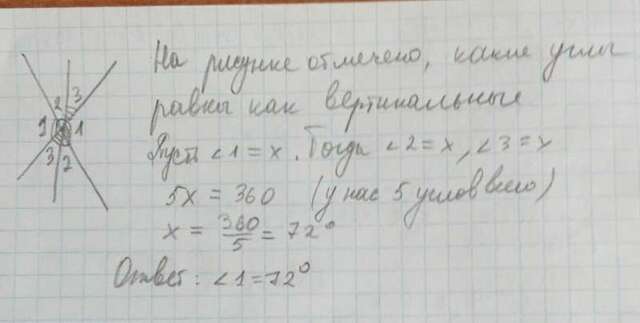 2 3
1 1
3 2
На рисунке отмечено, какие углы
равны как вертикальные
Пусть ∠1 = x. Тогда ∠2 = x, ∠3 = x
5x = 360 (у нас 5 углов всего)
x = 360/5 = 72°
Ответ: ∠1 = 72°